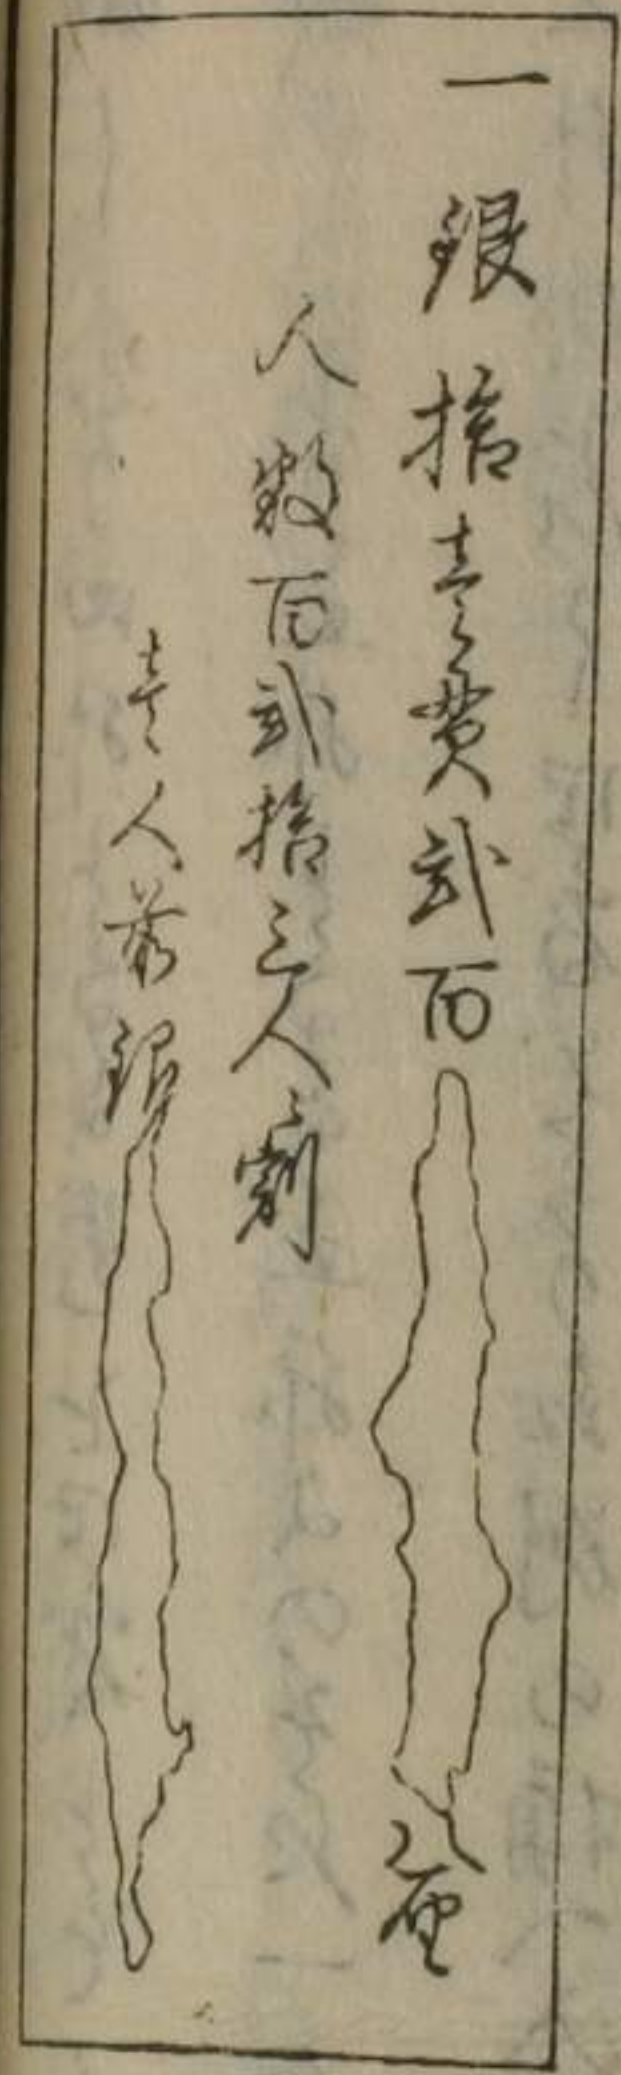 一 銀拾壱貫弐百 厘
人数百弐拾三人ニ割
壱人前銀